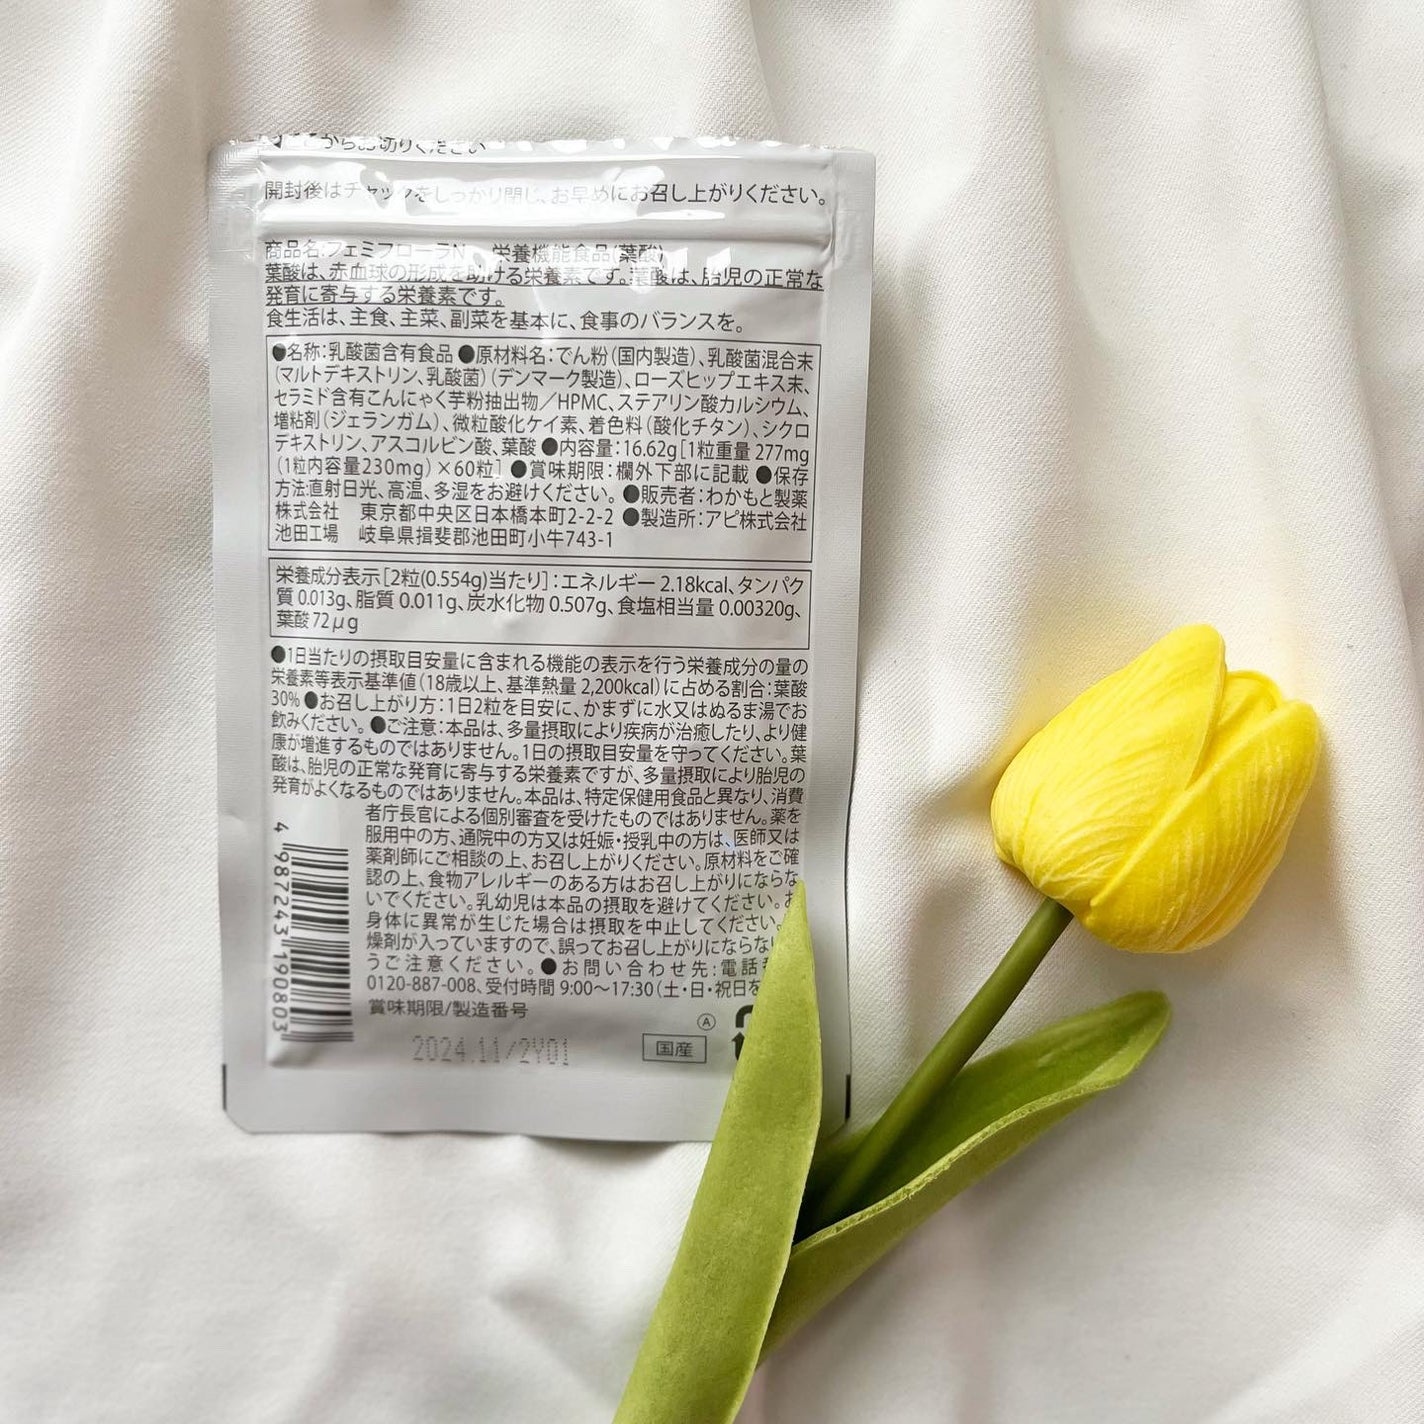 からお切りください
開封後はチャックをしっかり閉じ、お早めにお召し上がりください。
商品名:フェミフローラN 栄養機能食品(葉酸)
葉酸は、赤血球の形成を助ける栄養素です。葉酸は、胎児の正常な
発育に寄与する栄養素です。
食生活は、主食、主菜、副菜を基本に、食事のバランスを。
●名称:乳酸菌含有食品 ●原材料名:でん粉(国内製造)、乳酸菌混合末
(マルトデキストリン、乳酸菌)(デンマーク製造)、ローズヒップエキス末、
セラミド含有こんにゃく芋粉抽出物/HPMC、ステアリン酸カルシウム、
増粘剤(ジェランガム)、微粒酸化ケイ素、着色料(酸化チタン)、シクロ
デキストリン、アスコルビン酸、葉酸 ●内容量:16.62g[1粒重量 277mg
(1粒内容量230mg)×60粒] ●賞味期限:欄外下部に記載 ●保存
方法:直射日光、高温、多湿をお避けください。 ●販売者:わかもと製薬
株式会社 東京都中央区日本橋本町2-2-2 ●製造所:アピ株式会社
池田工場 岐阜県揖斐郡池田町小牛743-1
栄養成分表示[2粒(0.554g)当たり]:エネルギー 2.18kcal、タンパク
質 0.013g、脂質 0.011g、炭水化物 0.507g、食塩相当量 0.00320g、
葉酸 72μg
●1日当たりの摂取目安量に含まれる機能の表示を行う栄養成分の量の
栄養素等表示基準値(18歳以上、基準熱量 2,200kcal)に占める割合:葉酸
30% ●お召し上がり方:1日2粒を目安に、かまずに水又はぬるま湯でお
飲みください。 ●ご注意:本品は、多量摂取により疾病が治癒したり、より健
康が増進するものではありません。1日の摂取目安量を守ってください。葉
酸は、胎児の正常な発育に寄与する栄養素ですが、多量摂取により胎児の
発育がよくなるものではありません。本品は、特定保健用食品と異なり、消費
者庁長官による個別審査を受けたものではありません。薬を
服用中の方、通院中の方又は妊娠・授乳中の方は、医師又は
薬剤師にご相談の上、お召し上がりください。原材料をご確
認の上、食物アレルギーのある方はお召し上がりにならな
いでください。乳幼児は本品の摂取を避けてください。お
身体に異常が生じた場合は摂取を中止してください。
燥剤が入っていますので、誤ってお召し上がりにならない
うご注意ください。 ●お問い合わせ先:電話
0120-887-008、受付時間 9:00〜17:30(土・日・祝日を
賞味期限/製造番号
2024.11/2Y01
Ⓐ
国産
4 987243 190803